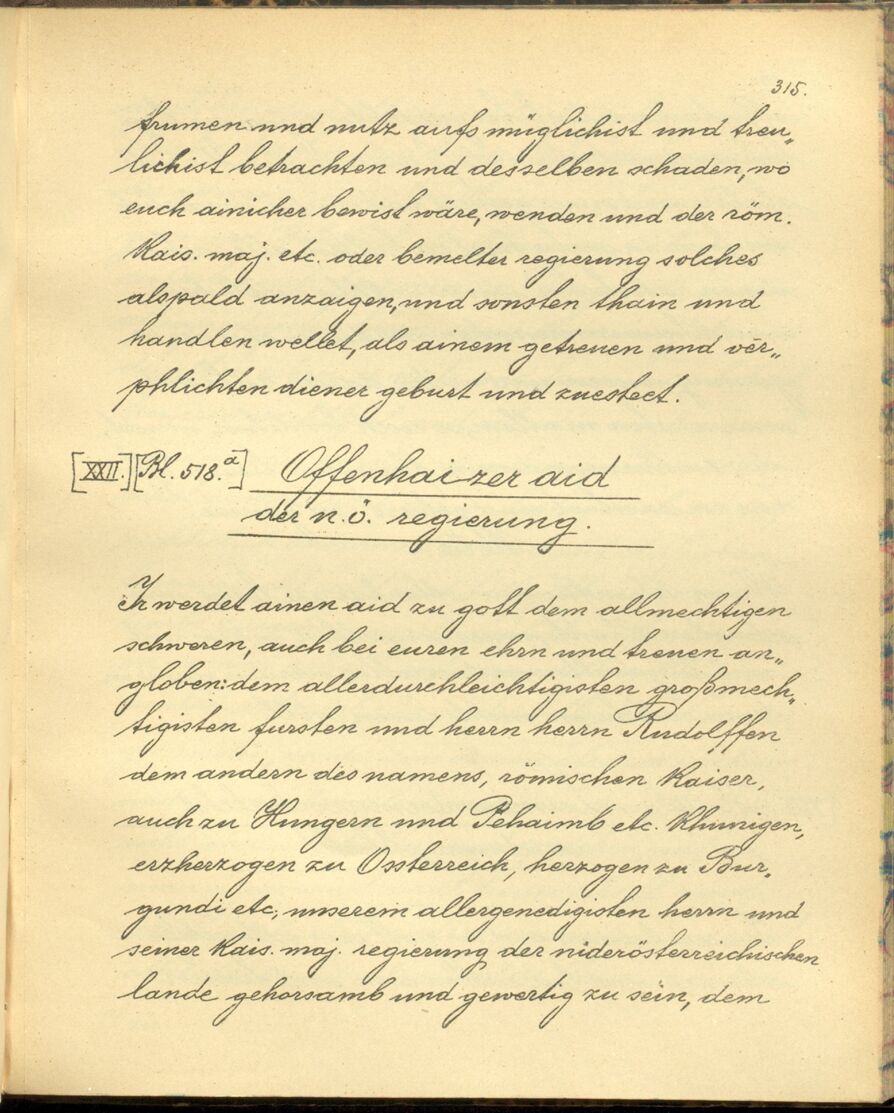 315.
frumen und nutz aufs müglichist und treu„
lichist betrachten und desselben schaden, wo
euch ainicher bewist wäre, wenden und der röm.
kais. maj. etc. oder bemelter regierung solches
alspald anzaigen, und sonsten thain und
handlen wellet, als ainem getreuen und ver„
phlichten diener geburt und zuesteet.
[XXII.] [Bl. 518.a] Offenhaizer aid
der n.ö. regierung.
Ir werdet ainen aid zu gott dem allmechtigen
schweren, auch bei euren ehrn und treuen an„
globen: dem allerdurchleichtigisten großmech„
tigisten fursten und herrn herrn Rudolffen
dem andern des namens, römischen kaiser,
auch zu Hungern und Pehaimb etc. khunigen,
erzherzogen zu Össterreich, herzogen zu Bur„
gundi etc., unserem allergenedigisten herrn und
seiner kais. maj. regierung der niderösterreichischen
lande gehorsamb und gewertig zu sein, dem